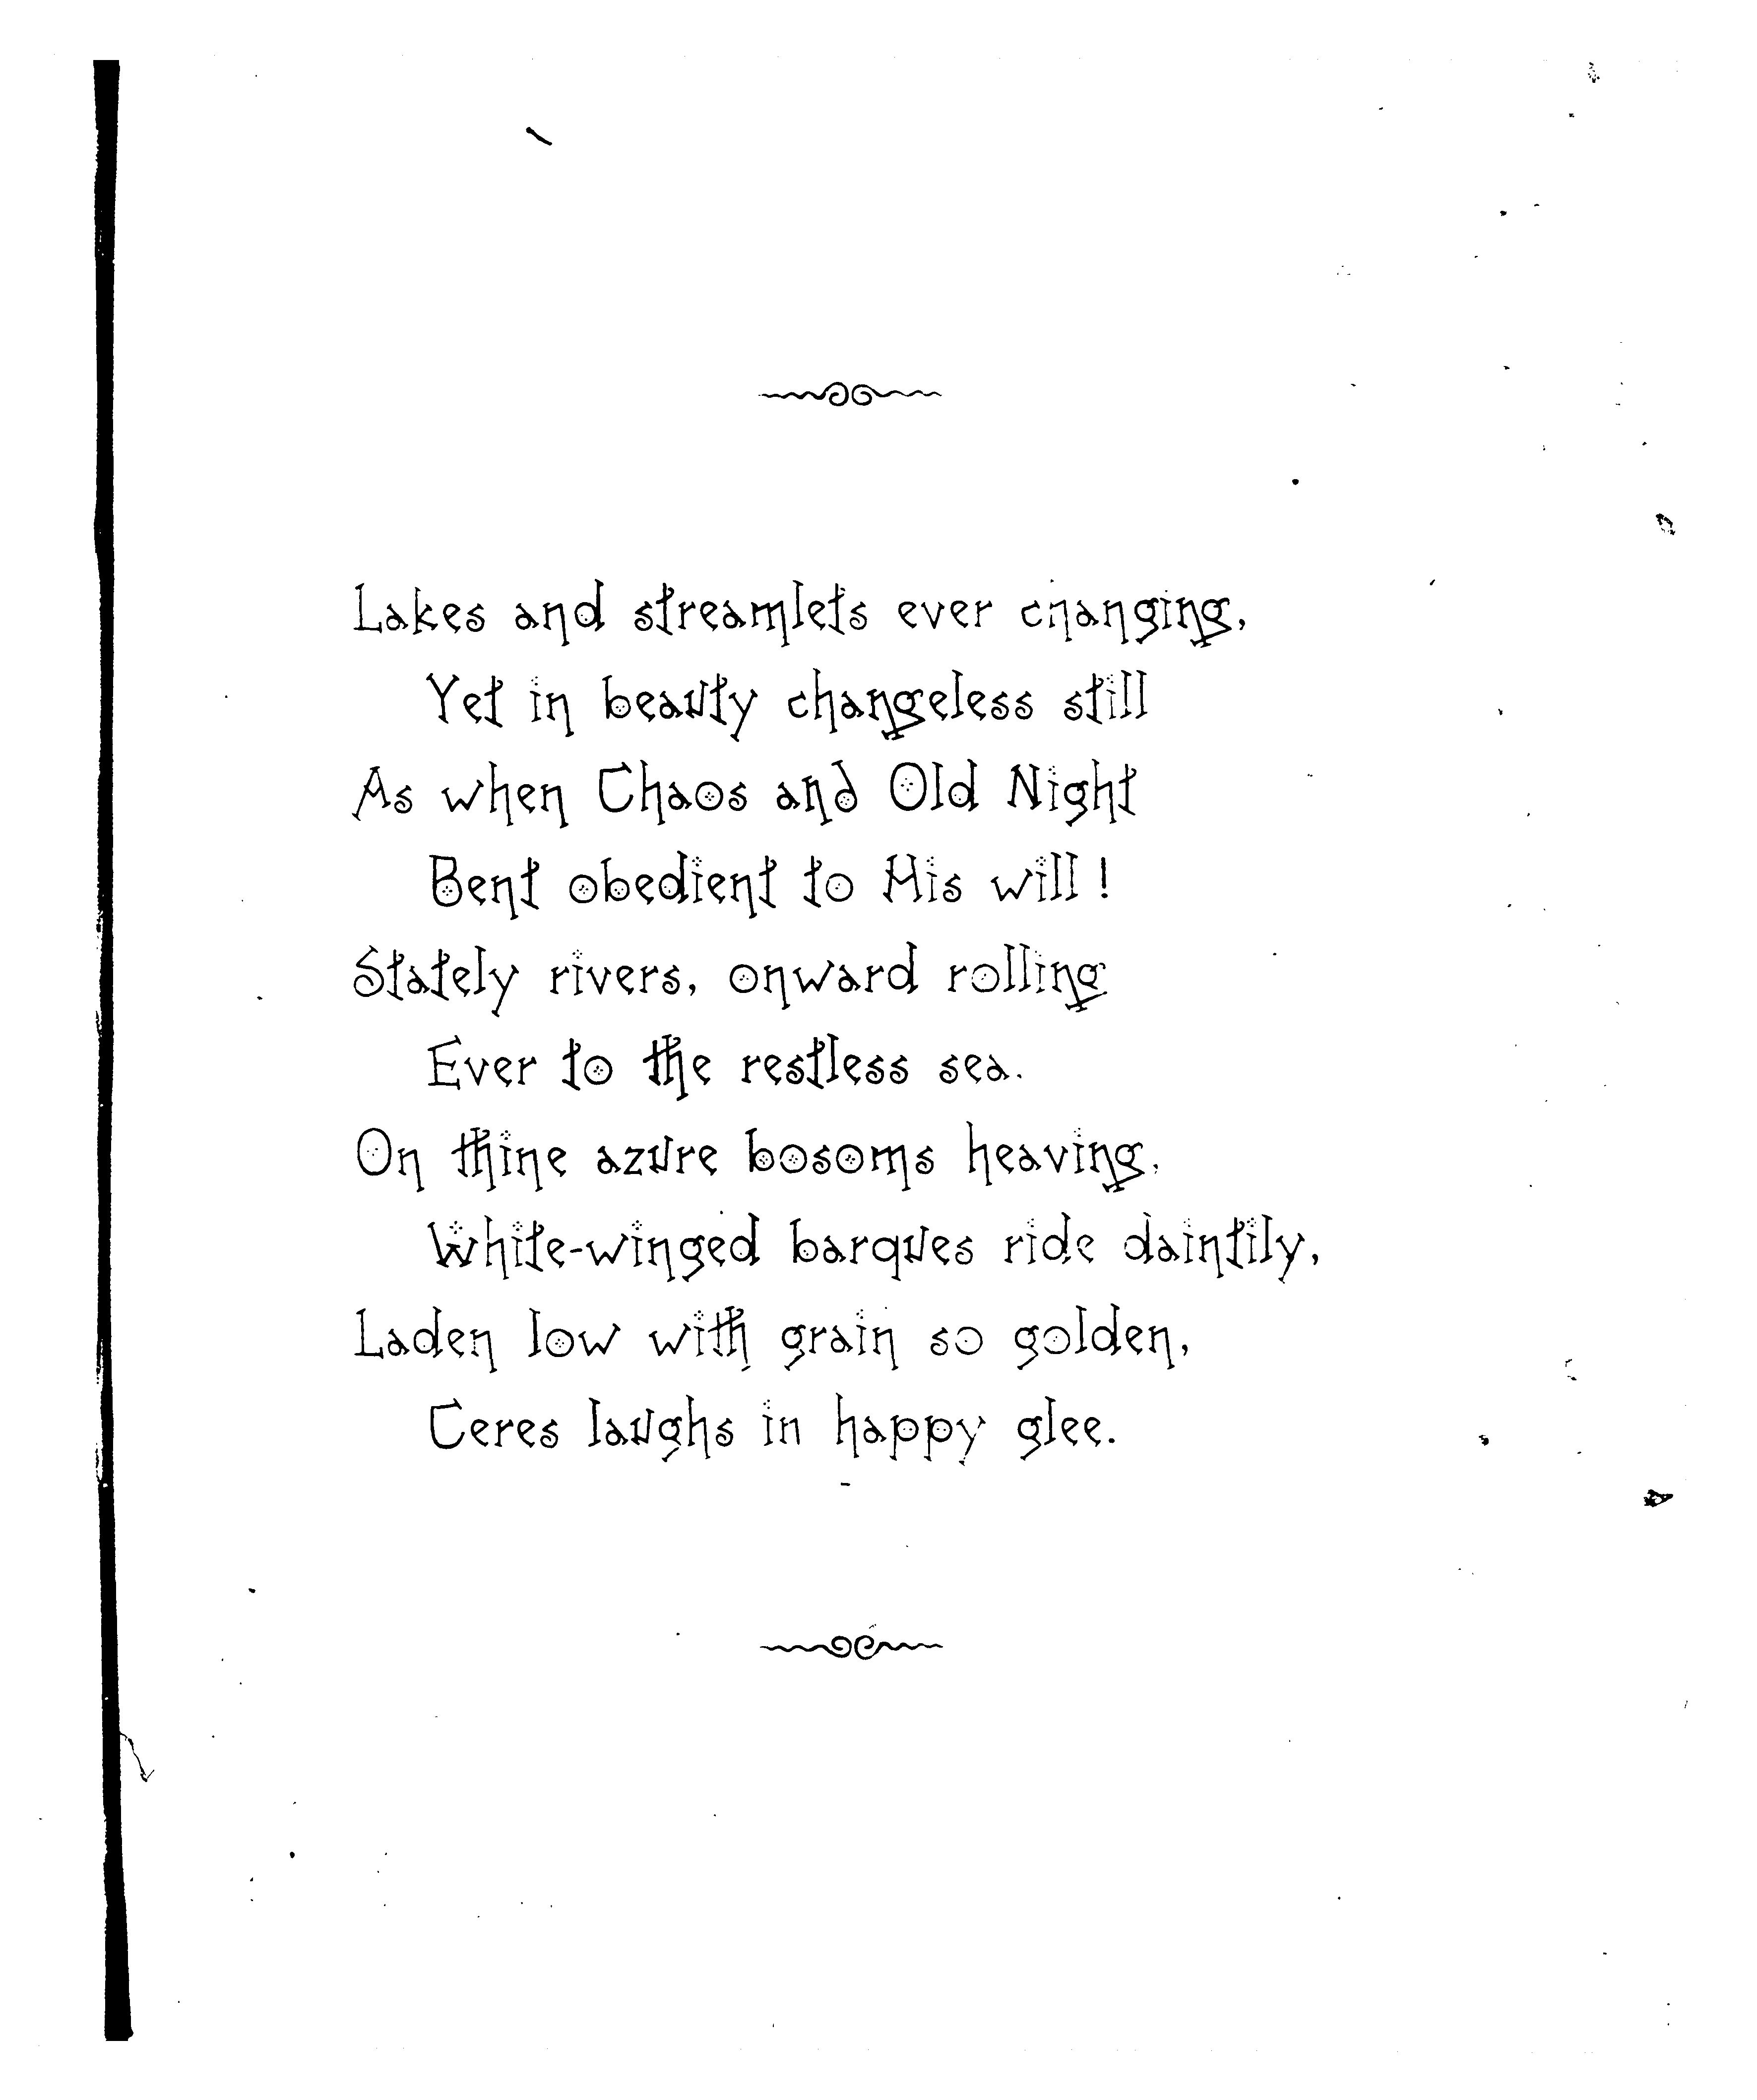 Lakes and streamlets ever changing,
Yet in beauty changeless still
As when Chaos and Old Night
Bent obedient to His will !
Stately rivers, onward rolling
Ever to the restless sea.
On thine azure bosoms heaving,
White-winged barques ride daintily,
Laden low with grain so golden,
Ceres laughs in happy glee.